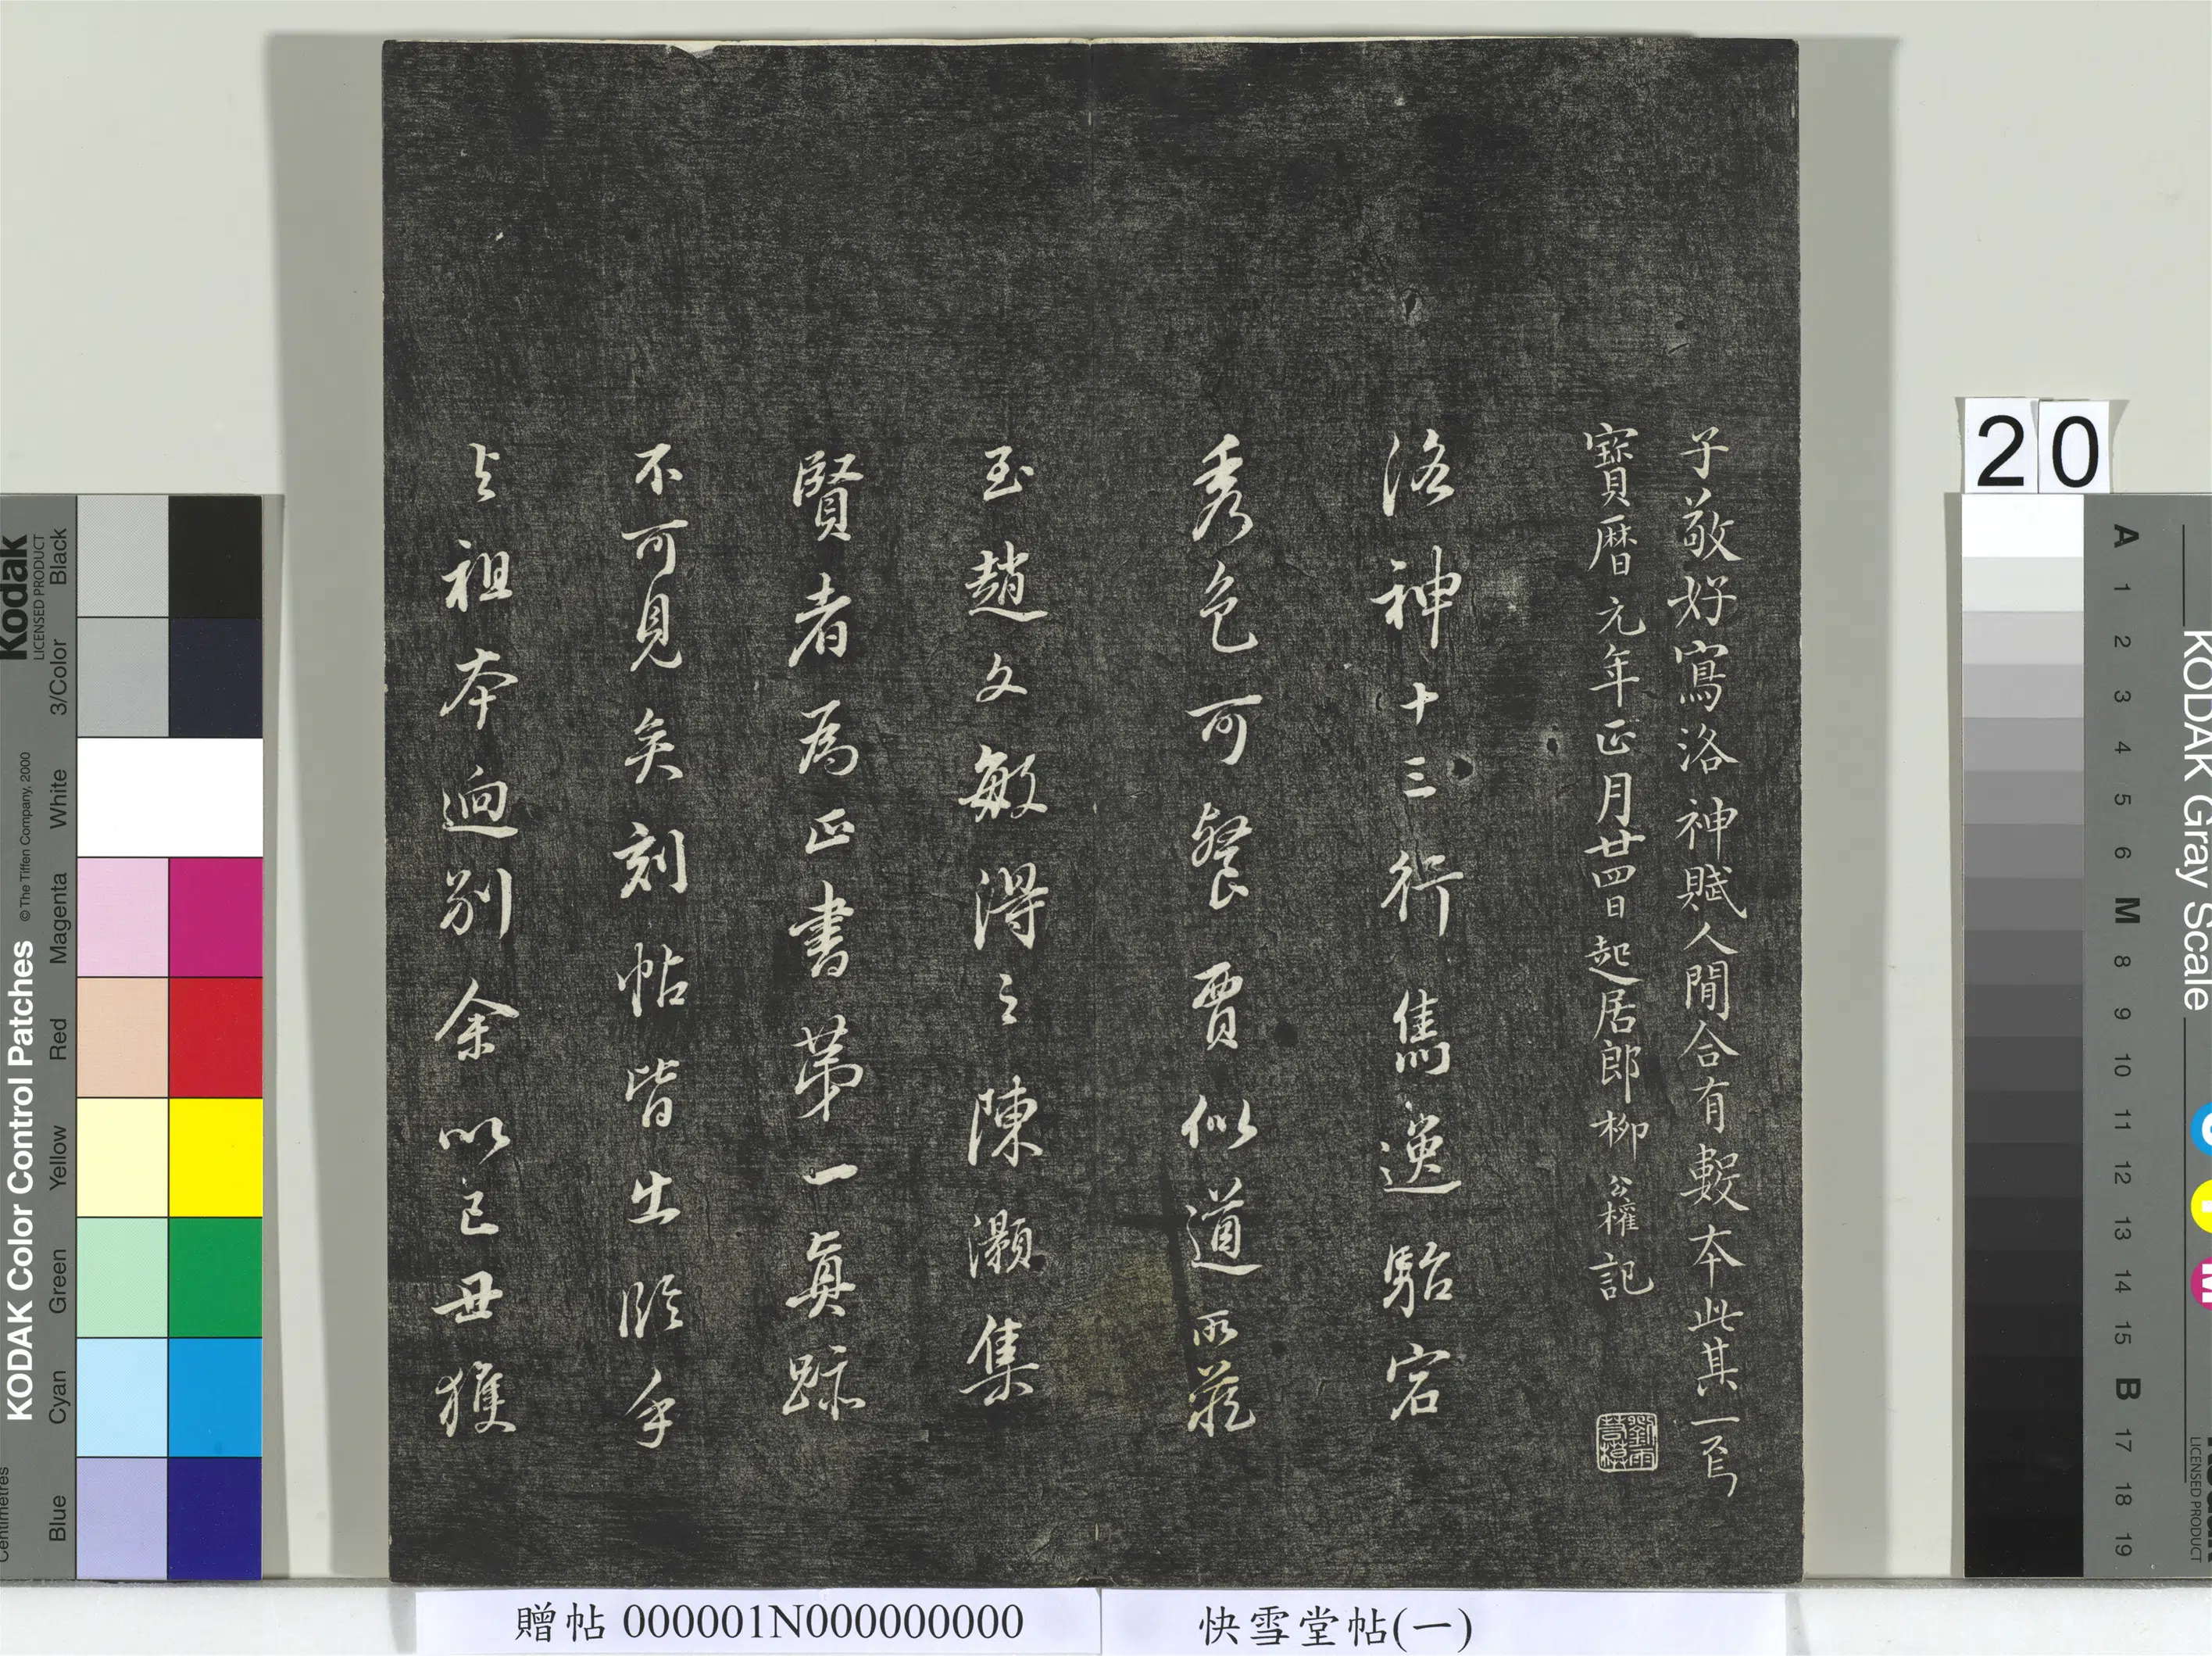 子敬好寫洛神賦人間合有數本此其一焉
寶曆元年正月廿四日起居郎柳公權記
劉雨
若模
洛神十三行雋逸駘宕
秀色可餐賈似道所藏
玉趙文敏得之陳灝集
賢者為正書第一真跡
不可見矣刻帖皆出臨手
與祖本迥別余以己丑獲
20
贈帖 000001N000000000
快雪堂帖(一)
Kodak
LICENSED PRODUCT
KODAK Color Control Patches
© The Tiffen Company, 2000
Centimetres
Black
3/Color
White
Magenta
Red
Yellow
Green
Cyan
Blue
KODAK Gray Scale
A 1 2 3 4 5 6 M 8 9 10 11 12 13 14 15 B 17 18 19
C
Y
M
Kodak
LICENSED PRODUCT